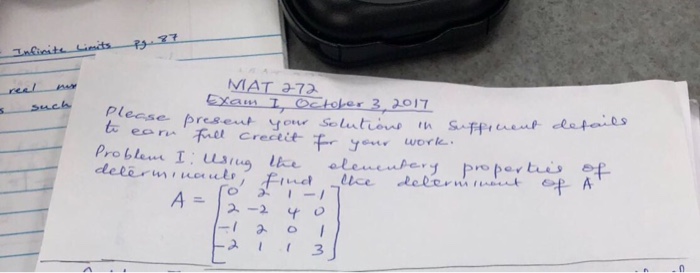 Infinite Limits pg. 87
real
such
MAT 272
Exam I, October 3, 2017
Please present your Solutions in sufficient details
to earn full credit for your work.
Problem I: Using the elementary properties of
determinants, find the determinant of A
A = [0 2 1 -1
2 -2 4 0
-1 2 0 1
-2 1 1 3]